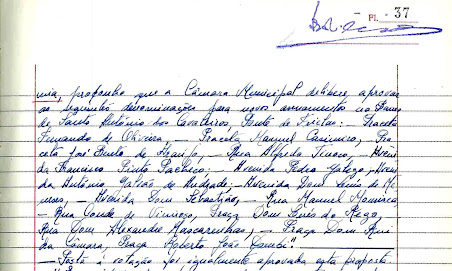 Fl. 37
nia, proponho que a Câmara Municipal delibere aprovar
as seguintes denominações para novos arruamentos no Bairro
de Santo António dos Cavaleiros, Ponte de Frielas: Praceta
Fernando de Oliveira, Praceta Manuel Casimiro, Pra
ceta José Bento de Araújo, - Rua Alfredo Tinoco, - Aveni
da Francisco Pinto Pacheco; - Avenida Pedro Galego, Aveni
da António Galvão de Andrade; - Avenida Dom Luís de Me
neses, - Avenida Dom Sebastião, - Rua Manuel Mourisca
- Rua Conde de Vimioso, Praça Dom Luís do Rego,
Rua Dom Alexandre Mascarenhas; - Praça Dom Rui
da Câmara, Praça Roberto João Gambi".
- Posta à votação foi igualmente aprovada esta proposta